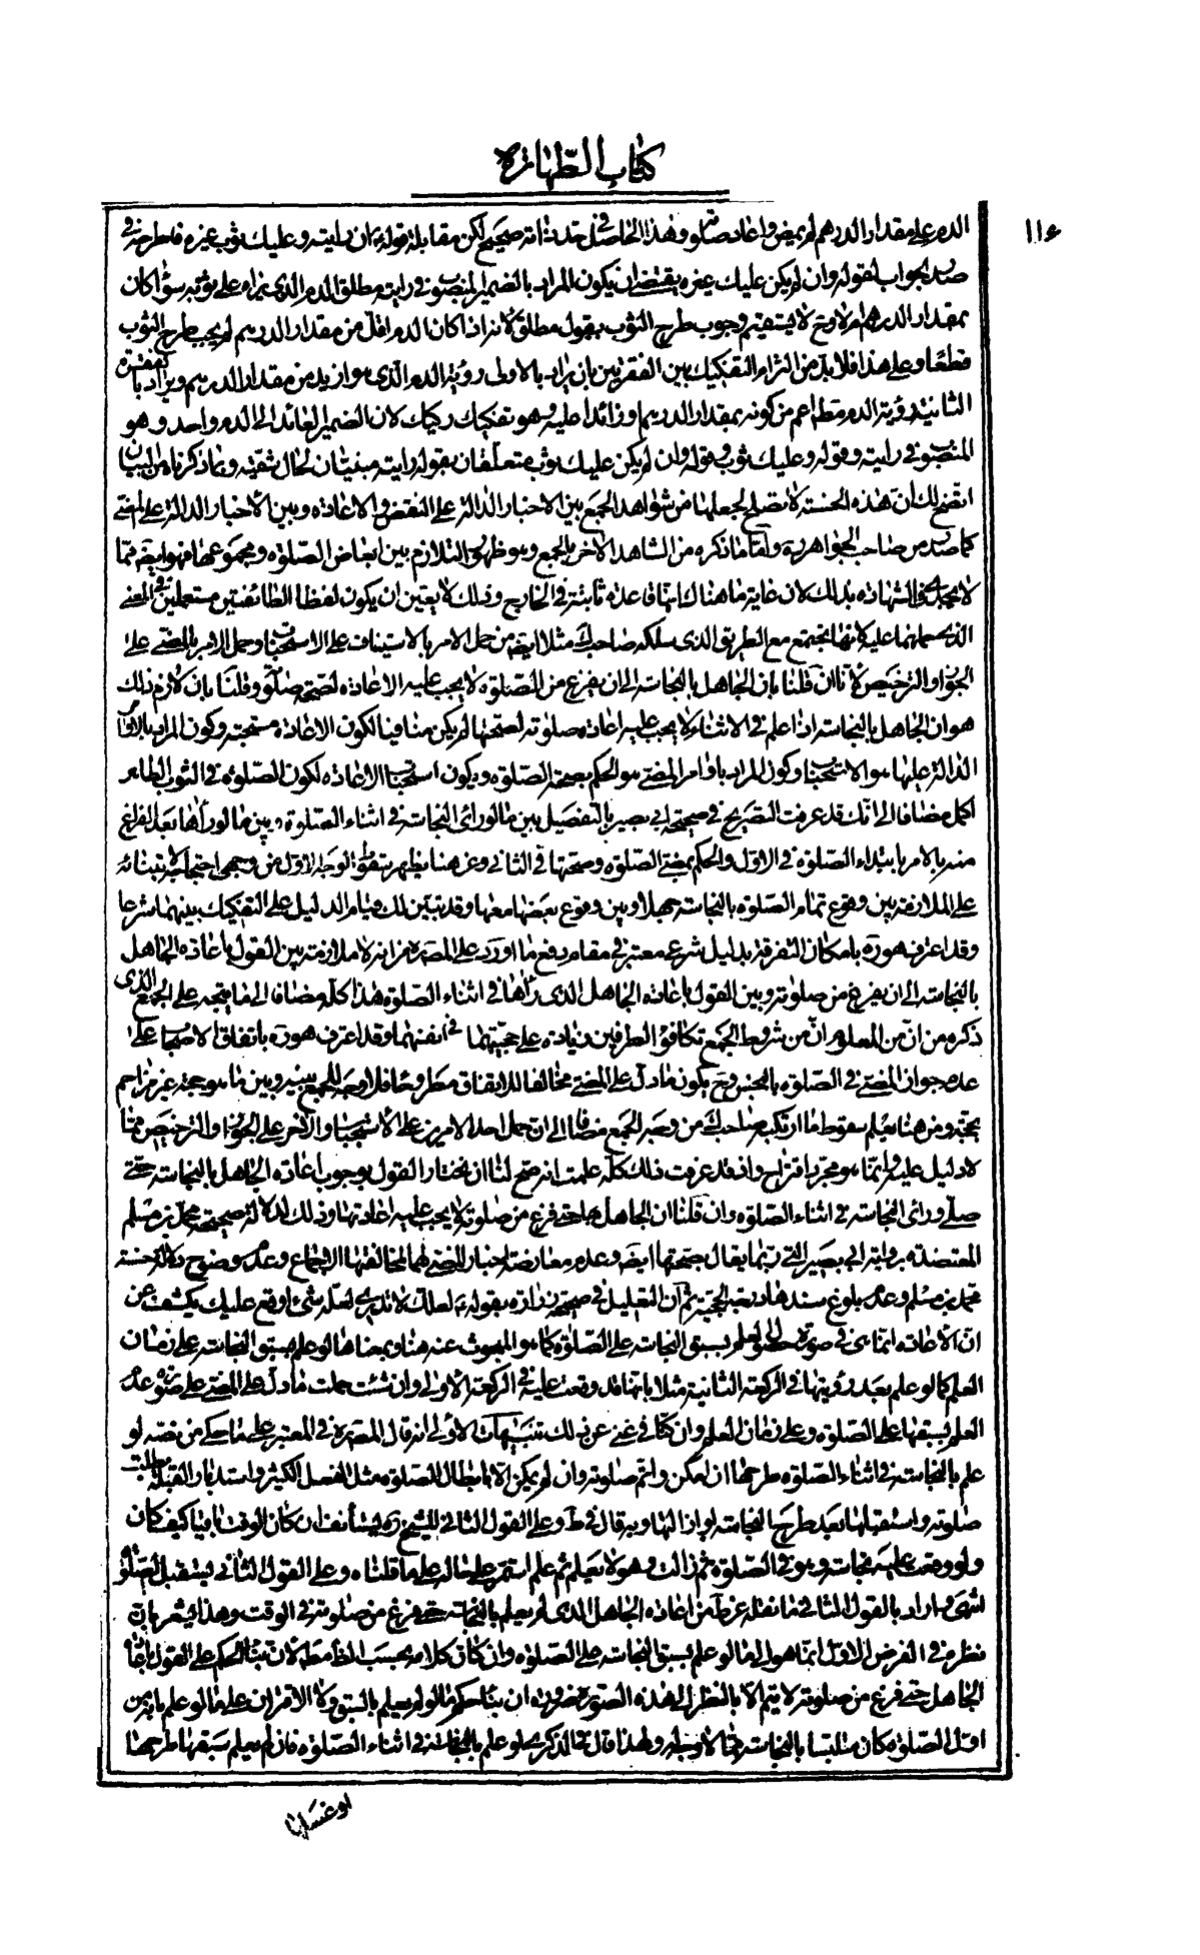 كتاب الطهارة
١١٤
الدم على مقدار الدرهم لم يمض واعاد صلوته وهذا الحاصل في حد ذاته صحيح لكن مقابلة قوله ان رايته وعليك ثوب غيره فاطرحه في
صدر الجواب لقوله وان لم يكن عليك غيره يقتضى ان يكون المراد بالضمير المنصوب في رايته مطلق الدم الذى يراه على ثوبه سواء كان
بمقدار الدرهم ام لا وح لا يستقيم وجوب طرح الثوب بقول مطلق لانه اذا كان الدم اقل من مقدار الدرهم لم يجب طرح الثوب
قطعا وعلى هذا فلا بد من التزام التفكيك بين الفقرتين بان يراد بالاولى رؤية الدم الذى هو ازيد من مقدار الدرهم ويراد بالفقرة
الثانية رؤية الدم مطلقا اعم من كونه بمقدار الدرهم وزائدا عليه وهو تفكيك ركيك لان الضمير العائد الى الدم واحد وهو
المنصوب في رايته وقوله وعليك ثوب وقوله وان لم يكن عليك ثوب متعلقان بقوله رايته مبنيتان لحال شقيه ومما ذكرناه من البيان
اتضح لك ان هذه الحسنة لا تصلح لجعلها من شواهد الجمع بين الاخبار الدالة على النقض والاعادة وبين الاخبار الدالة على المضى
كما صدر من صاحب الجواهر ره واما ما ذكره من الشاهد الاخر للجمع وهو ظهور التلازم بين ابعاض الصلوة ومجموعها فهو ايضا مما
لا مجال في الشهادة بذلك لان غاية ما هناك انها قاعدة ثابتة في الخارج وذلك لا يعين ان يكون لفظا الطائفتين مستعملين في المعنى
الذى حملهما عليه لانها تجتمع مع الطريق الذى سلكه صاحب ك مثلا ايضا من حمل الامر بالاستيناف على الاستحباب وحمل الامر بالمضى على
الجواز والترخيص لانا ان قلنا بان الجاهل بالنجاسة الى ان يفرغ من الصلوة لا يجب عليه الاعادة لصحة صلوته وقلنا بان لازم ذلك
هو ان الجاهل بالنجاسة اذا علم في الاثناء لا يجب عليه اعادة صلوته لصحتها لم يكن منافيا لكون الاعادة مستحبة وكون المراد بالاوامر
الدالة عليها هو الاستحباب وكون المراد باوامر المضى هو الحكم بصحة الصلوة ويكون استحباب الاعادة لكون الصلوة في الثوب الطاهر
اكمل مضافا الى انك قد عرفت التصريح في صحيحة ابى بصير بالتفصيل بين ما لو رأى النجاسة في اثناء الصلوة وبين ما لو رآها بعد الفراغ
منه بالامر بابتداء الصلوة في الاول والحكم بمضى الصلوة وصحتها في الثانى ومن هنا يظهر سقوط الوجه الاول من وجهى احتجاجه لابتنائه
على الملازمة بين وقوع تمام الصلوة بالنجاسة جهلا وبين وقوع بعضها معها وقد تبين لك قيام الدليل على التفكيك بينهما شرعا
وقد اعترف هو ره بامكان التفرقة بدليل شرعى معتبر في مقام دفع ما اورد على المصنف ره من انه لا ملازمة بين القول باعادة الجاهل
بالنجاسة الى ان يفرغ من صلوته وبين القول باعادة الجاهل الذى رآها في اثناء الصلوة هذا كله مضافا الى ما يتجه على الجمع الذى
ذكره من ان من المعلوم ان من شروط الجمع تكافؤ الطرفين زيادة على حجيتهما في انفسهما وقد اعترف هو ره باتفاق الاصحاب على
عدم جواز المضى في الصلوة بالنجس وح يكون ما دل على المضى مخالفا للاتفاق مطروحا فلا وجه للجمع بينه وبين ما هو حجة غير مزاحم
بحجة ومن هنا يعلم سقوط ما ارتكبه صاحب ك من وجه الجمع مضافا الى ان حمل احد الامرين على الاستحباب والاخر على الجواز والترخيص مما
لا دليل عليه وانما هو مجرد اقتراح واذ قد عرفت ذلك كله علمت انه صح لنا ان نختار القول بوجوب اعادة الجاهل بالنجاسة حتى
صلى ورأى النجاسة في اثناء الصلوة وان قلنا ان الجاهل بها حتى فرغ من صلوته لا يجب عليه اعادتها وذلك لدلالة صحيحة محمد بن مسلم
المعتضدة برواية ابى بصير التى ربما يقال بصحتها ايضا وعدم معارضة اخبار المضى لهما لمخالفتها الاجماع وعدم وضوح دلالة حسنة
محمد بن مسلم وعدم بلوغ سندها درجة الحجية ثم ان التعليل في صحيحة زرارة بقوله لعلك لا تدرى لعله شىء اوقع عليك يكشف عن
ان الاعادة انما هى في صورة حصول العلم بسبق النجاسة على الصلوة كما هو المبحوث عنه هنا وبمعناها لو علم بسبق النجاسة على زمان
العلم كما لو علم بعد رؤيتها في الركعة الثانية مثلا بانها قد وقعت عليه في الركعة الاولى وان شئت حملت ما دل على المضى على صورة عدم
العلم بسبقها على الصلوة وعلى زمان العلم وان كنا في غنى عن ذلك تنبيهات الاول انه قال المصنف ره في المعتبر على ما حكى من نصه لو
علم بالنجاسة في اثناء الصلوة طرحها ان امكن واتم صلوته وان لم يكن الا بابطال للصلوة مثل الفعل الكثير واستدبار القبلة بطلت
صلوته واستقبلها بعد طرح النجاسة او ازالتها وبه قال في ط وعلى القول الثانى للشيخ ره يستأنف ان كان الوقت باقيا كيف كان
ولو وقعت عليه نجاسة وهو في الصلوة ثم زالت وهو لا يعلم ثم علم استمر على حاله على ما قلناه وعلى القول الثانى يستقبل الصلوة
انتهى واراد بالقول الثانى ما نقله عن ط من اعادة الجاهل الذى لم يعلم بالنجاسة حتى فرغ من صلوته في الوقت وهذا يشعر بان
نظره في الفرض الاول انما هو الى ما لو علم بسبق النجاسة على الصلوة وان كان كلامه بحسب الظ مطلقا لان بناء الحكم على القول باعادة
الجاهل حتى فرغ من صلوته لا يتم الا بالنظر الى هذه الصورة ضرورة ان بناء حكم ما لو لم يعلم بالسبق ولا الاقتران على ما لو علم بانه من
اول الصلوة كان متلبسا بالنجاسة مما لا وجه له ولهذا قال في الذكرى لو علم بالنجاسة في اثناء الصلوة فان لم يعلم سبقها طرحها
او غسلها